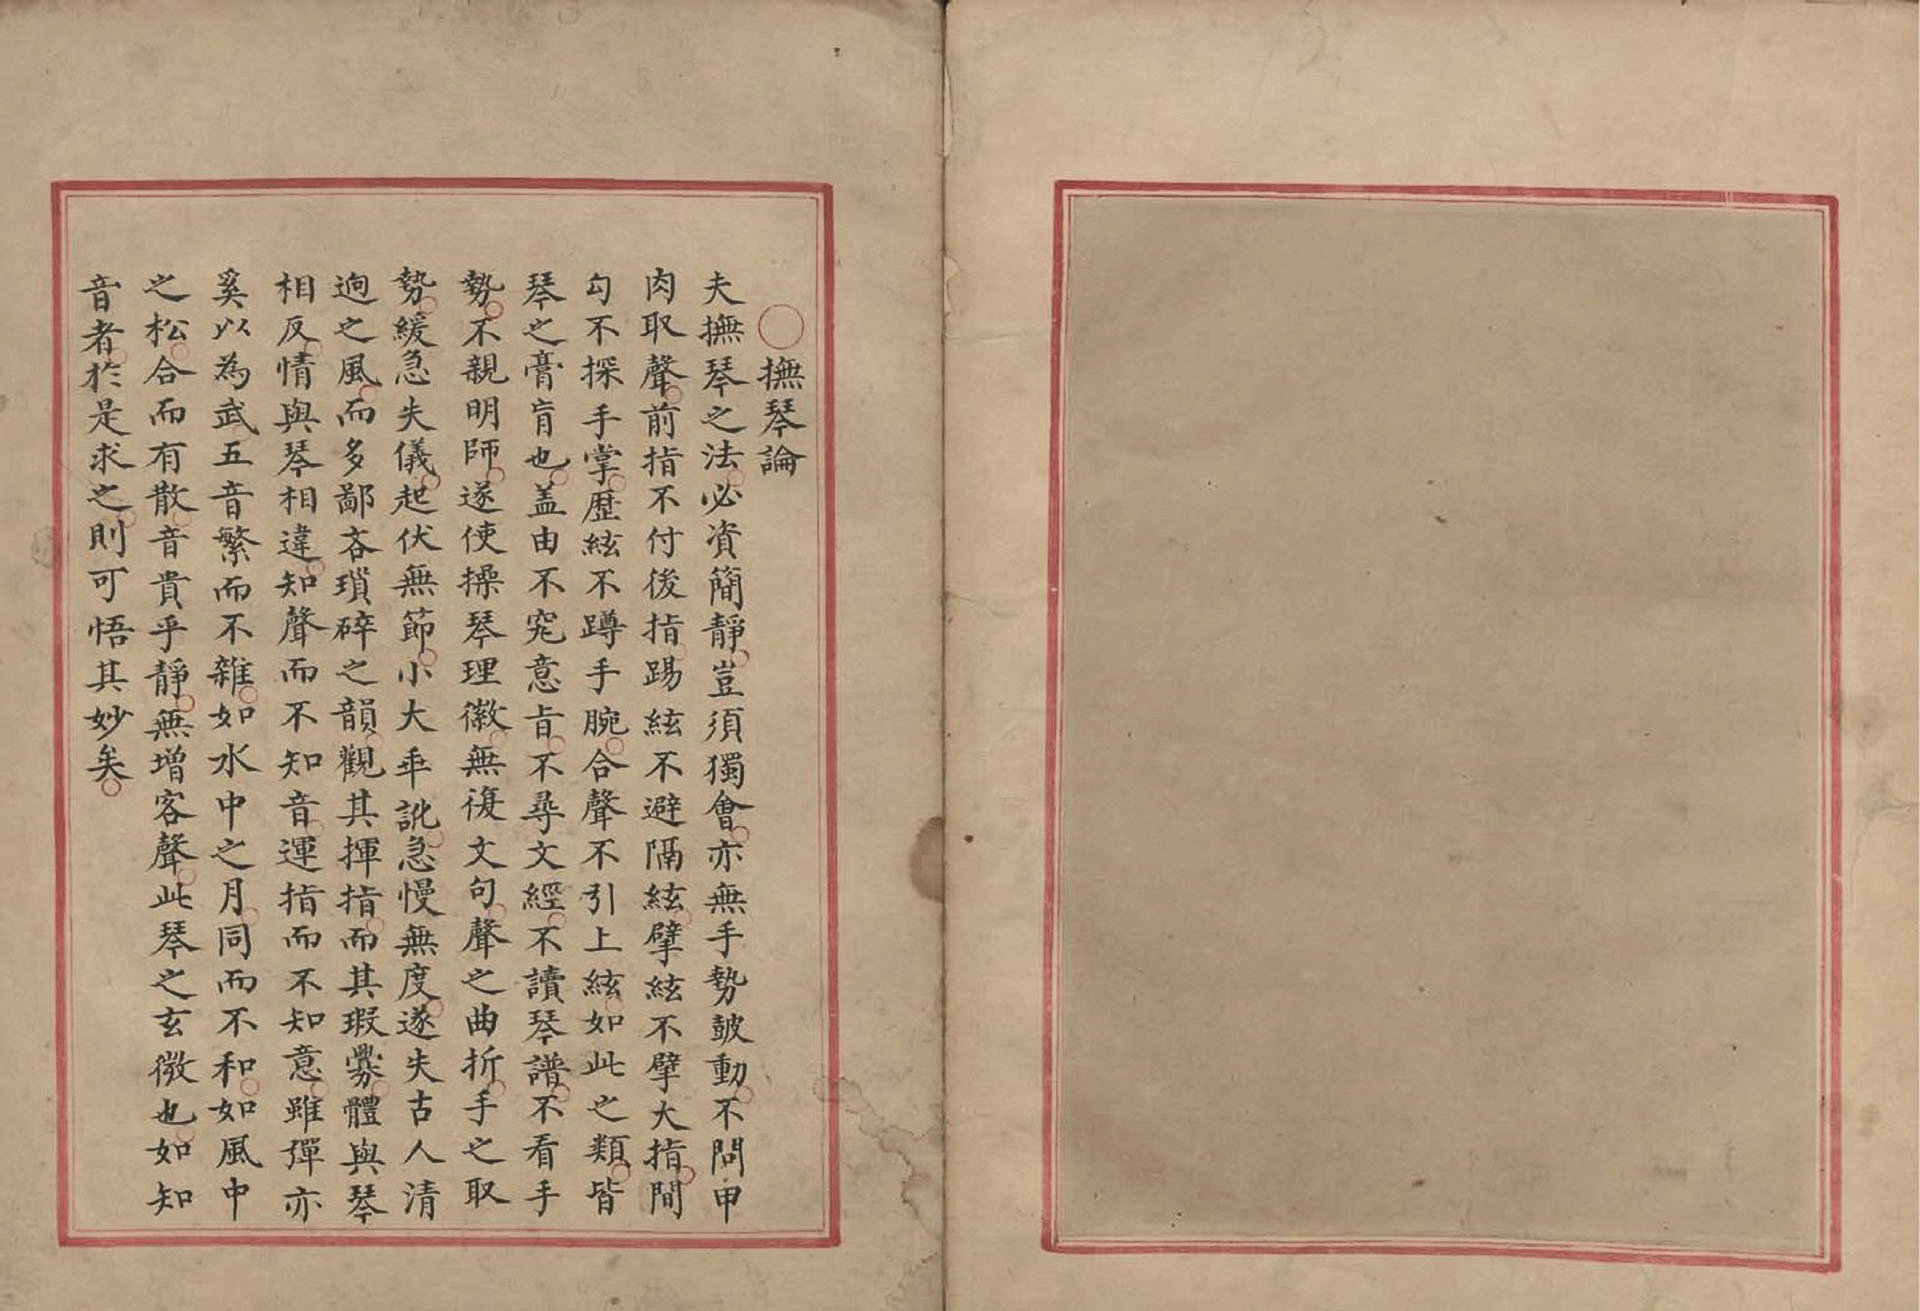 撫琴論
夫撫琴之法必資簡靜豈須獨會亦無手勢皷動不問甲
肉取聲前指不付後指踢絃不避隔絃擘絃不擘大指間
勾不探手掌歷絃不蹲手腕合聲不引上絃如此之類皆
琴之膏肓也盖由不究意㫖不尋文經不讀琴譜不看手
勢不親明師遂使操琴理徽無復文句聲之曲折手之取
勢緩急失儀起伏無節小大乖訛急慢無度遂失古人清
逈之風而多鄙吝瑣碎之韻觀其揮指而其瑕釁體與琴
相反情與琴相違知聲而不知音運指而不知意雖彈亦
奚以為武五音繁而不雜如水中之月同而不和如風中
之松合而有散音貴乎靜無增客聲此琴之玄微也如知
音者於是求之則可悟其妙矣